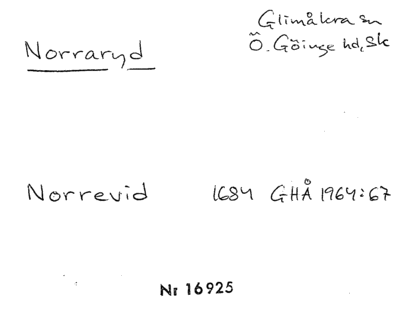 Norraryd
Glimåkra sn
Ö. Göinge hd, Sk
Norrevid 1684 GHÅ 1964:67
Nr 16925